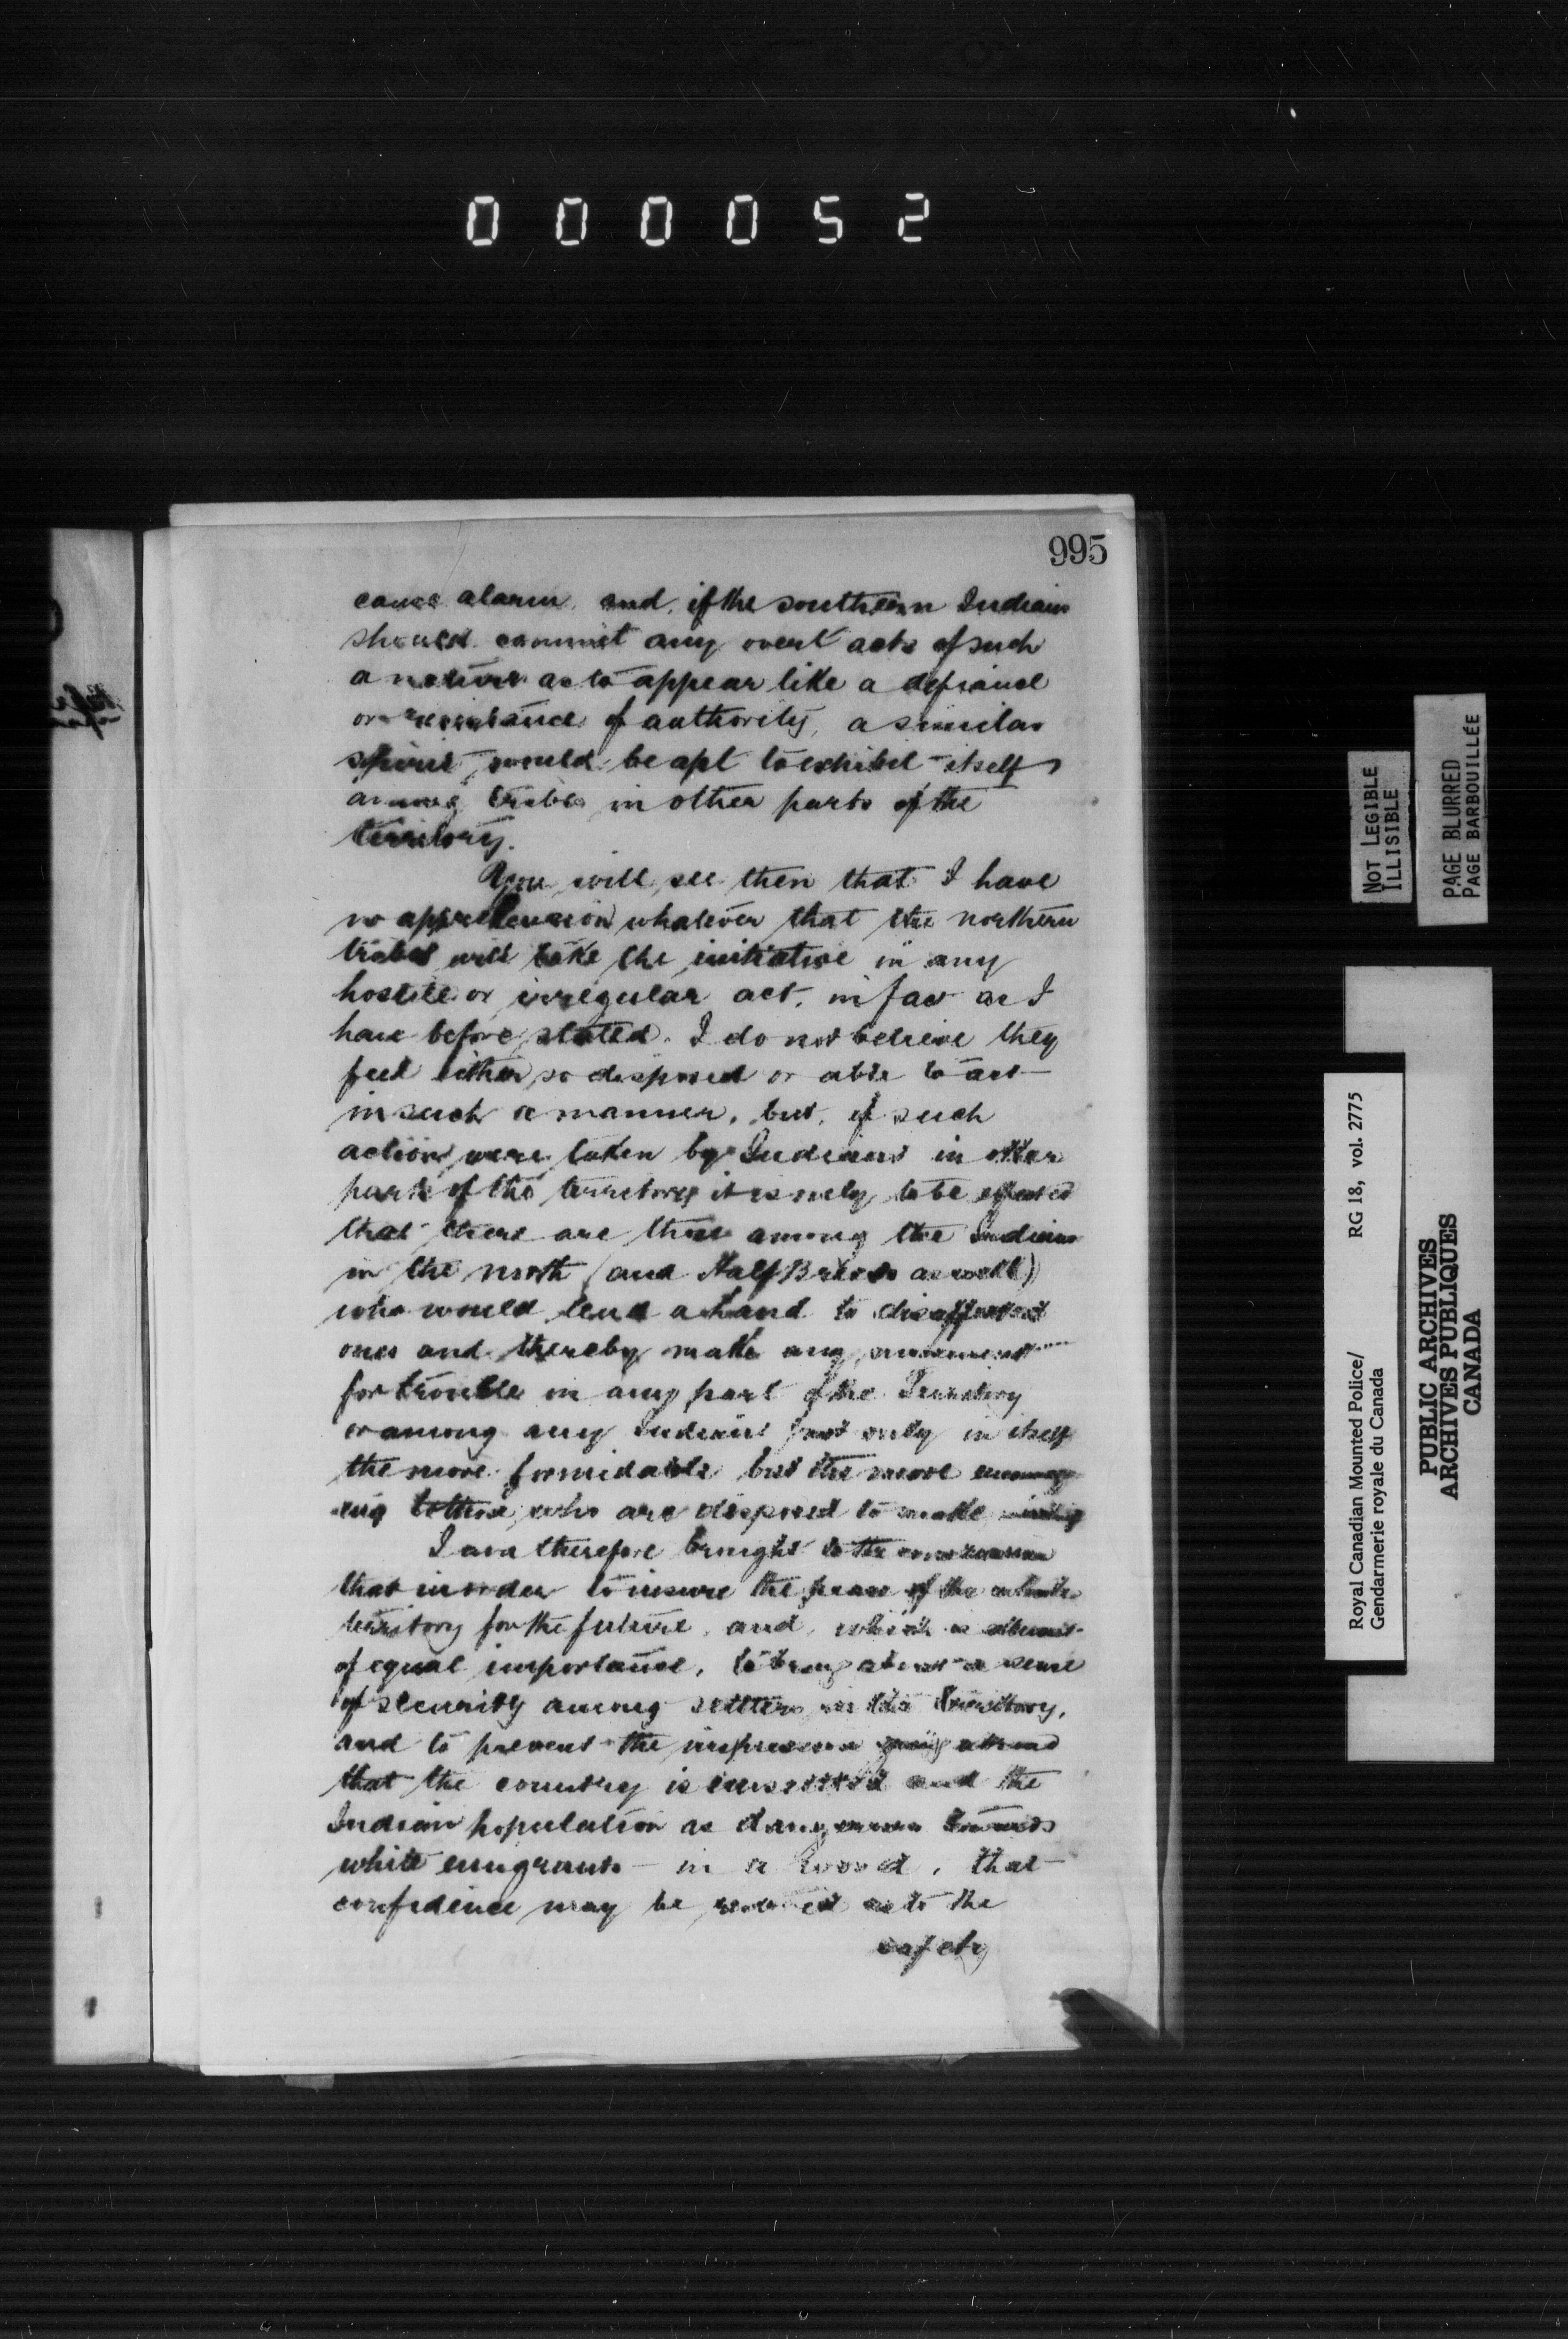 000052
995
cause alarm, and, if the southern Indians
should commit any overt acts of such
a nature as to appear like a defiance
or resistance of authority, a similar
spirit would be apt to exhibit itself
among tribes in other parts of the
territory.
You will see then that I have
no apprehension whatever that the northern
tribes will take the initiative in any
hostile or irregular act, in fact as I
have before stated. I do not believe they
feel either so disposed or able to act
in such a manner, but, if such
action were taken by Indians in other
parts of the territory it is only to be expected
that there are those among the Indians
in the north (and Half Breeds as well)
who would lend a hand to disaffected
ones and thereby make any movement
for trouble in any part of the Territory
or among any Indians not only in itself
the more formidable but the more encourag-
ing to those who are disposed to make
I am therefore brought to the conclusion
that in order to insure the peace of the whole
territory for the future, and, which is almost
of equal importance, to bring about a sense
of security among settlers in the Territory,
and to prevent the impression going abroad
that the country is unsettled and the
Indian population as dangerous towards
white emigrants - in a word, that
confidence may be as to the
safety
NOT LEGIBLE
ILLISIBLE
PAGE BLURRED
PAGE BARBOUILLÉE
Royal Canadian Mounted Police/ RG 18, vol. 2775
Gendarmerie royale du Canada
PUBLIC ARCHIVES
ARCHIVES PUBLIQUES
CANADA